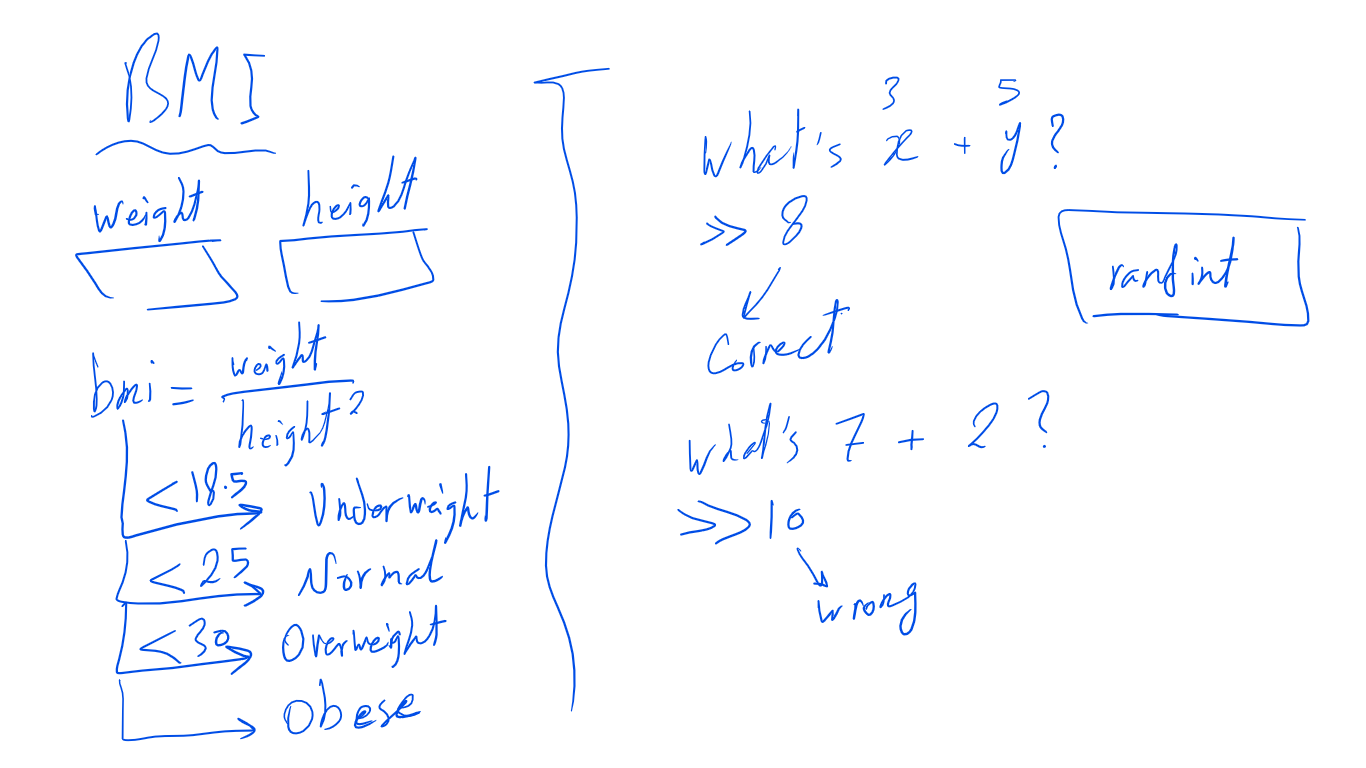 BMI
weight height
bmi = weight
height²
<18.5 Underweight
<25 Normal
<30 Overweight
Obese
3 5
What's x + y ?
>> 8
Correct
ranfint
What's 7 + 2 ?
>> 10
wrong